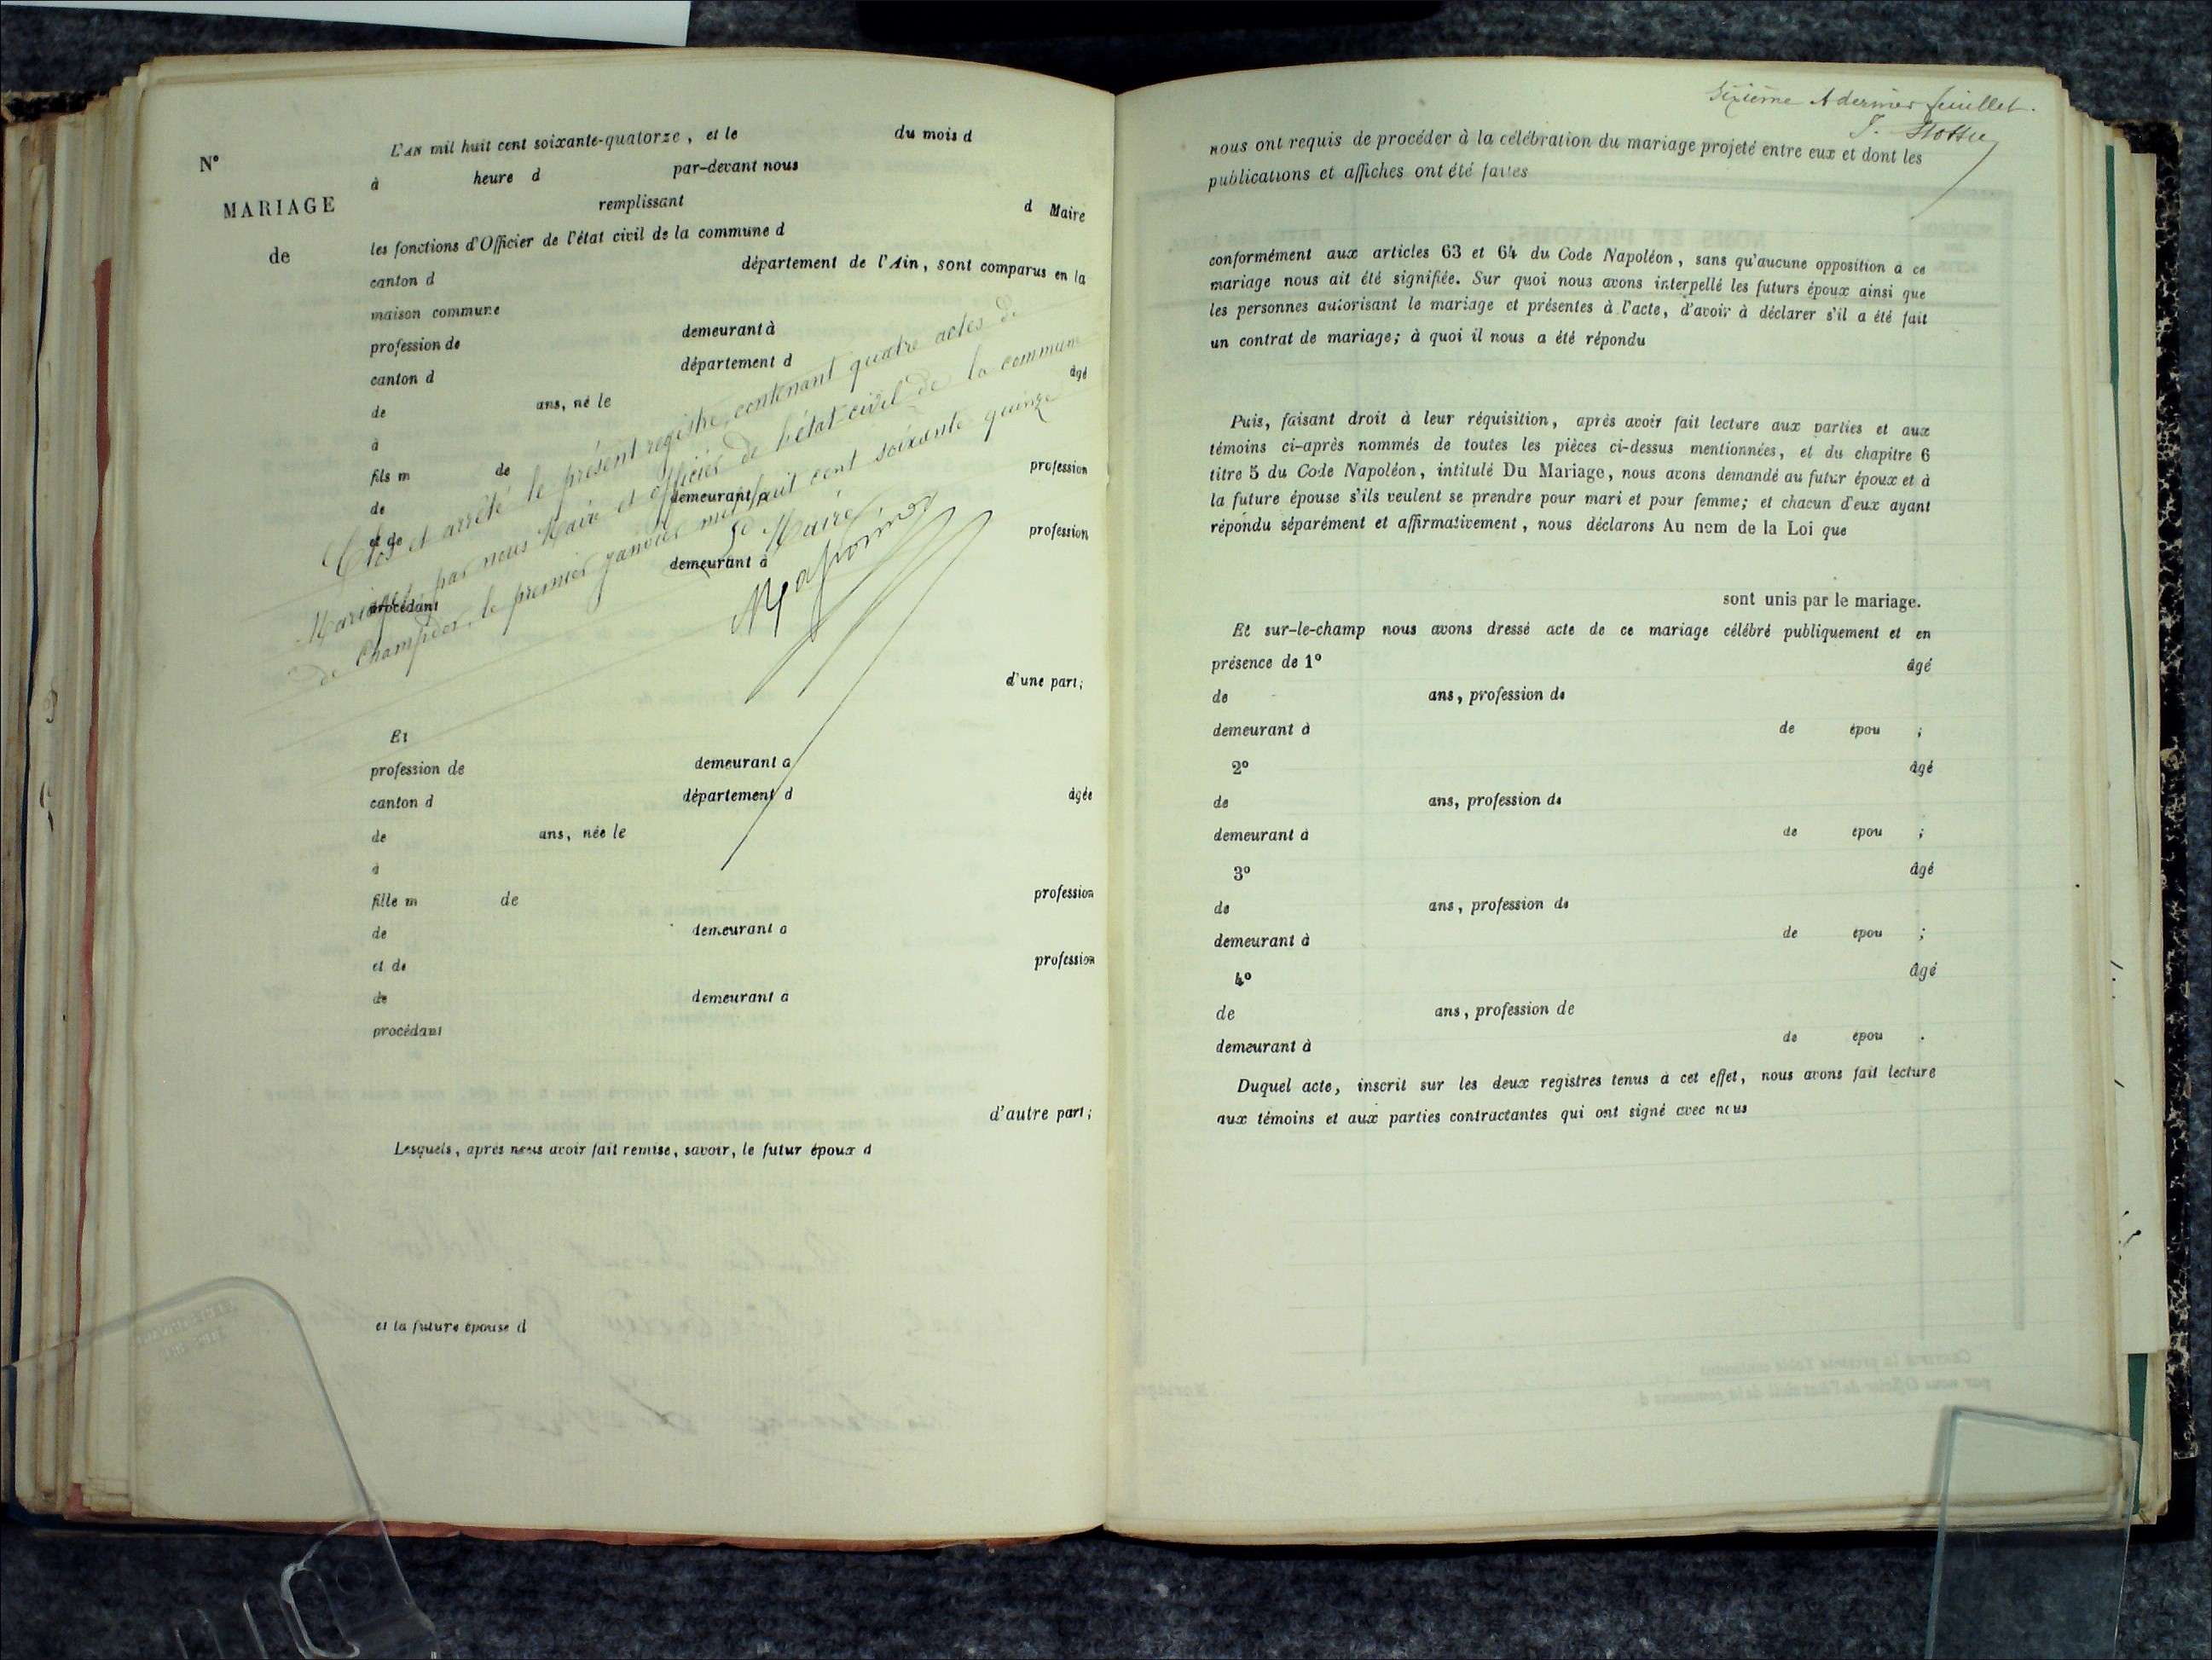 N°
MARIAGE
de
L'AN mil huit cent soixante-quatorze, et le du mois d
à heure d par-devant nous
remplissant d Maire
les fonctions d'Officier de l'état civil de la commune d
canton d département de l'Ain, sont comparus en la
maison commune
profession de demeurant à
canton d département d âgé
de ans, né le
à
fils m de profession
de demeurant à
et de profession
demeurant à
procédant
Clos et arrêté le présent registre, contenant quatre actes de
Mariages, par nous Maire et officier de l'état civil de la commune
de Champdor, le premier janvier mil huit cent soixante quinze
Le Maire
d'une part;
Et
profession de demeurant à
canton d département d âgée
de ans, née le
à
fille m de profession
de demeurant à
et de profession
de demeurant à
procédant
d'autre part;
Lesquels, après nous avoir fait remise, savoir, le futur époux d
et la future épouse d
Sixième & dernier feuillet.
nous ont requis de procéder à la célébration du mariage projeté entre eux et dont les
publications et affiches ont été faites
conformément aux articles 63 et 64 du Code Napoléon, sans qu'aucune opposition à ce
mariage nous ait été signifiée. Sur quoi nous avons interpellé les futurs époux ainsi que
les personnes autorisant le mariage et présentes à l'acte, d'avoir à déclarer s'il a été fait
un contrat de mariage; à quoi il nous a été répondu
Puis, faisant droit à leur réquisition, après avoir fait lecture aux parties et aux
témoins ci-après nommés de toutes les pièces ci-dessus mentionnées, et du chapitre 6
titre 5 du Code Napoléon, intitulé Du Mariage, nous avons demandé au futur époux et à
la future épouse s'ils veulent se prendre pour mari et pour femme; et chacun d'eux ayant
répondu séparément et affirmativement, nous déclarons Au nom de la Loi que
sont unis par le mariage.
Et sur-le-champ nous avons dressé acte de ce mariage célébré publiquement et en
présence de 1° âgé
de ans, profession de
demeurant à de épou ;
2° âgé
de ans, profession de
demeurant à de épou ;
3° âgé
de ans, profession de
demeurant à de épou ;
4° âgé
de ans, profession de
demeurant à de épou .
Duquel acte, inscrit sur les deux registres tenus à cet effet, nous avons fait lecture
aux témoins et aux parties contractantes qui ont signé avec nous